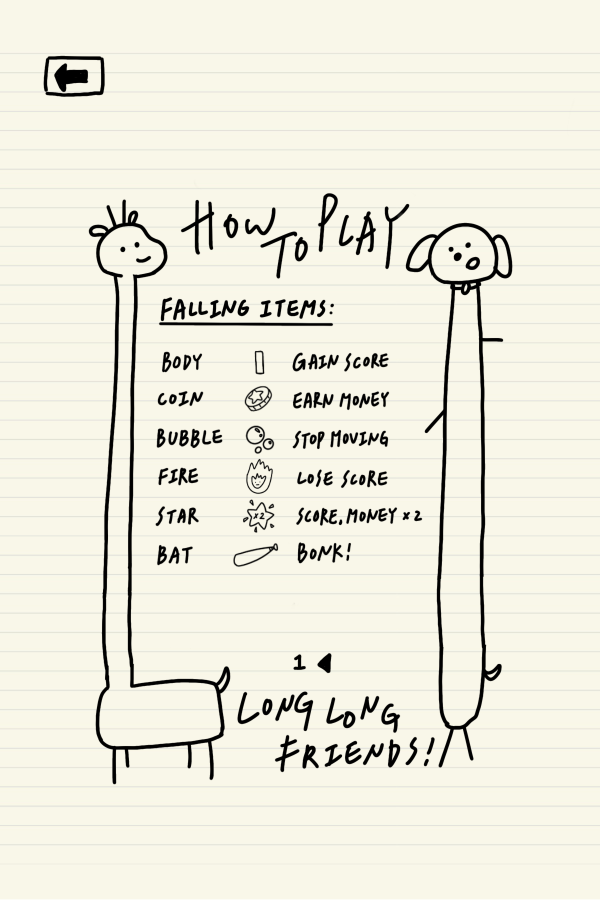 HOW TO PLAY
FALLING ITEMS:
BODY GAIN SCORE
COIN EARN MONEY
BUBBLE STOP MOVING
FIRE LOSE SCORE
STAR x2 SCORE, MONEY x2
BAT BONK!
1
LONG LONG
FRIENDS!